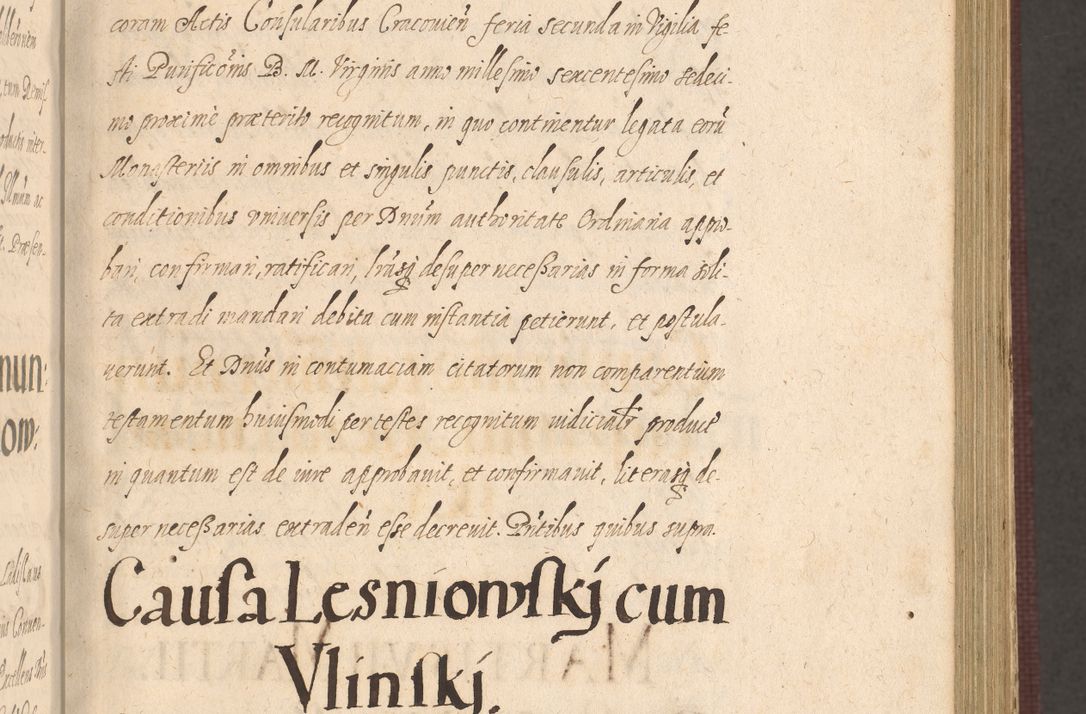 coram Actis Consularibus Cracovien̄ feria secunda in Vigilia fe
sti Purificōnis B. M. Virginis anno millesimo sexcentesimo sedeci-
mo proximè præterito recognitum, in quo continentur legata eorū
Monasteriis in omnibus et singulis punctis, clausulis, articulis, et
conditionibus universis per Dnūm authoritate Ordinaria appro-
bari, confirmari, ratificari, lrāsq desuper necessarias in forma soli-
ta extradi mandari debita cum instantia petierunt, et postula-
verunt. Et Dnūs in contumaciam citatorum non comparentium
testamentum huiusmodi per testes recognitum iudicialr product
in quantum est de iure approbavit, et confirmavit, literasq de-
super necessarias extraden̄ esse decrevit. Pn̄tibus quibus supra.
Causa Lesniowskj cum
Vlinskj.